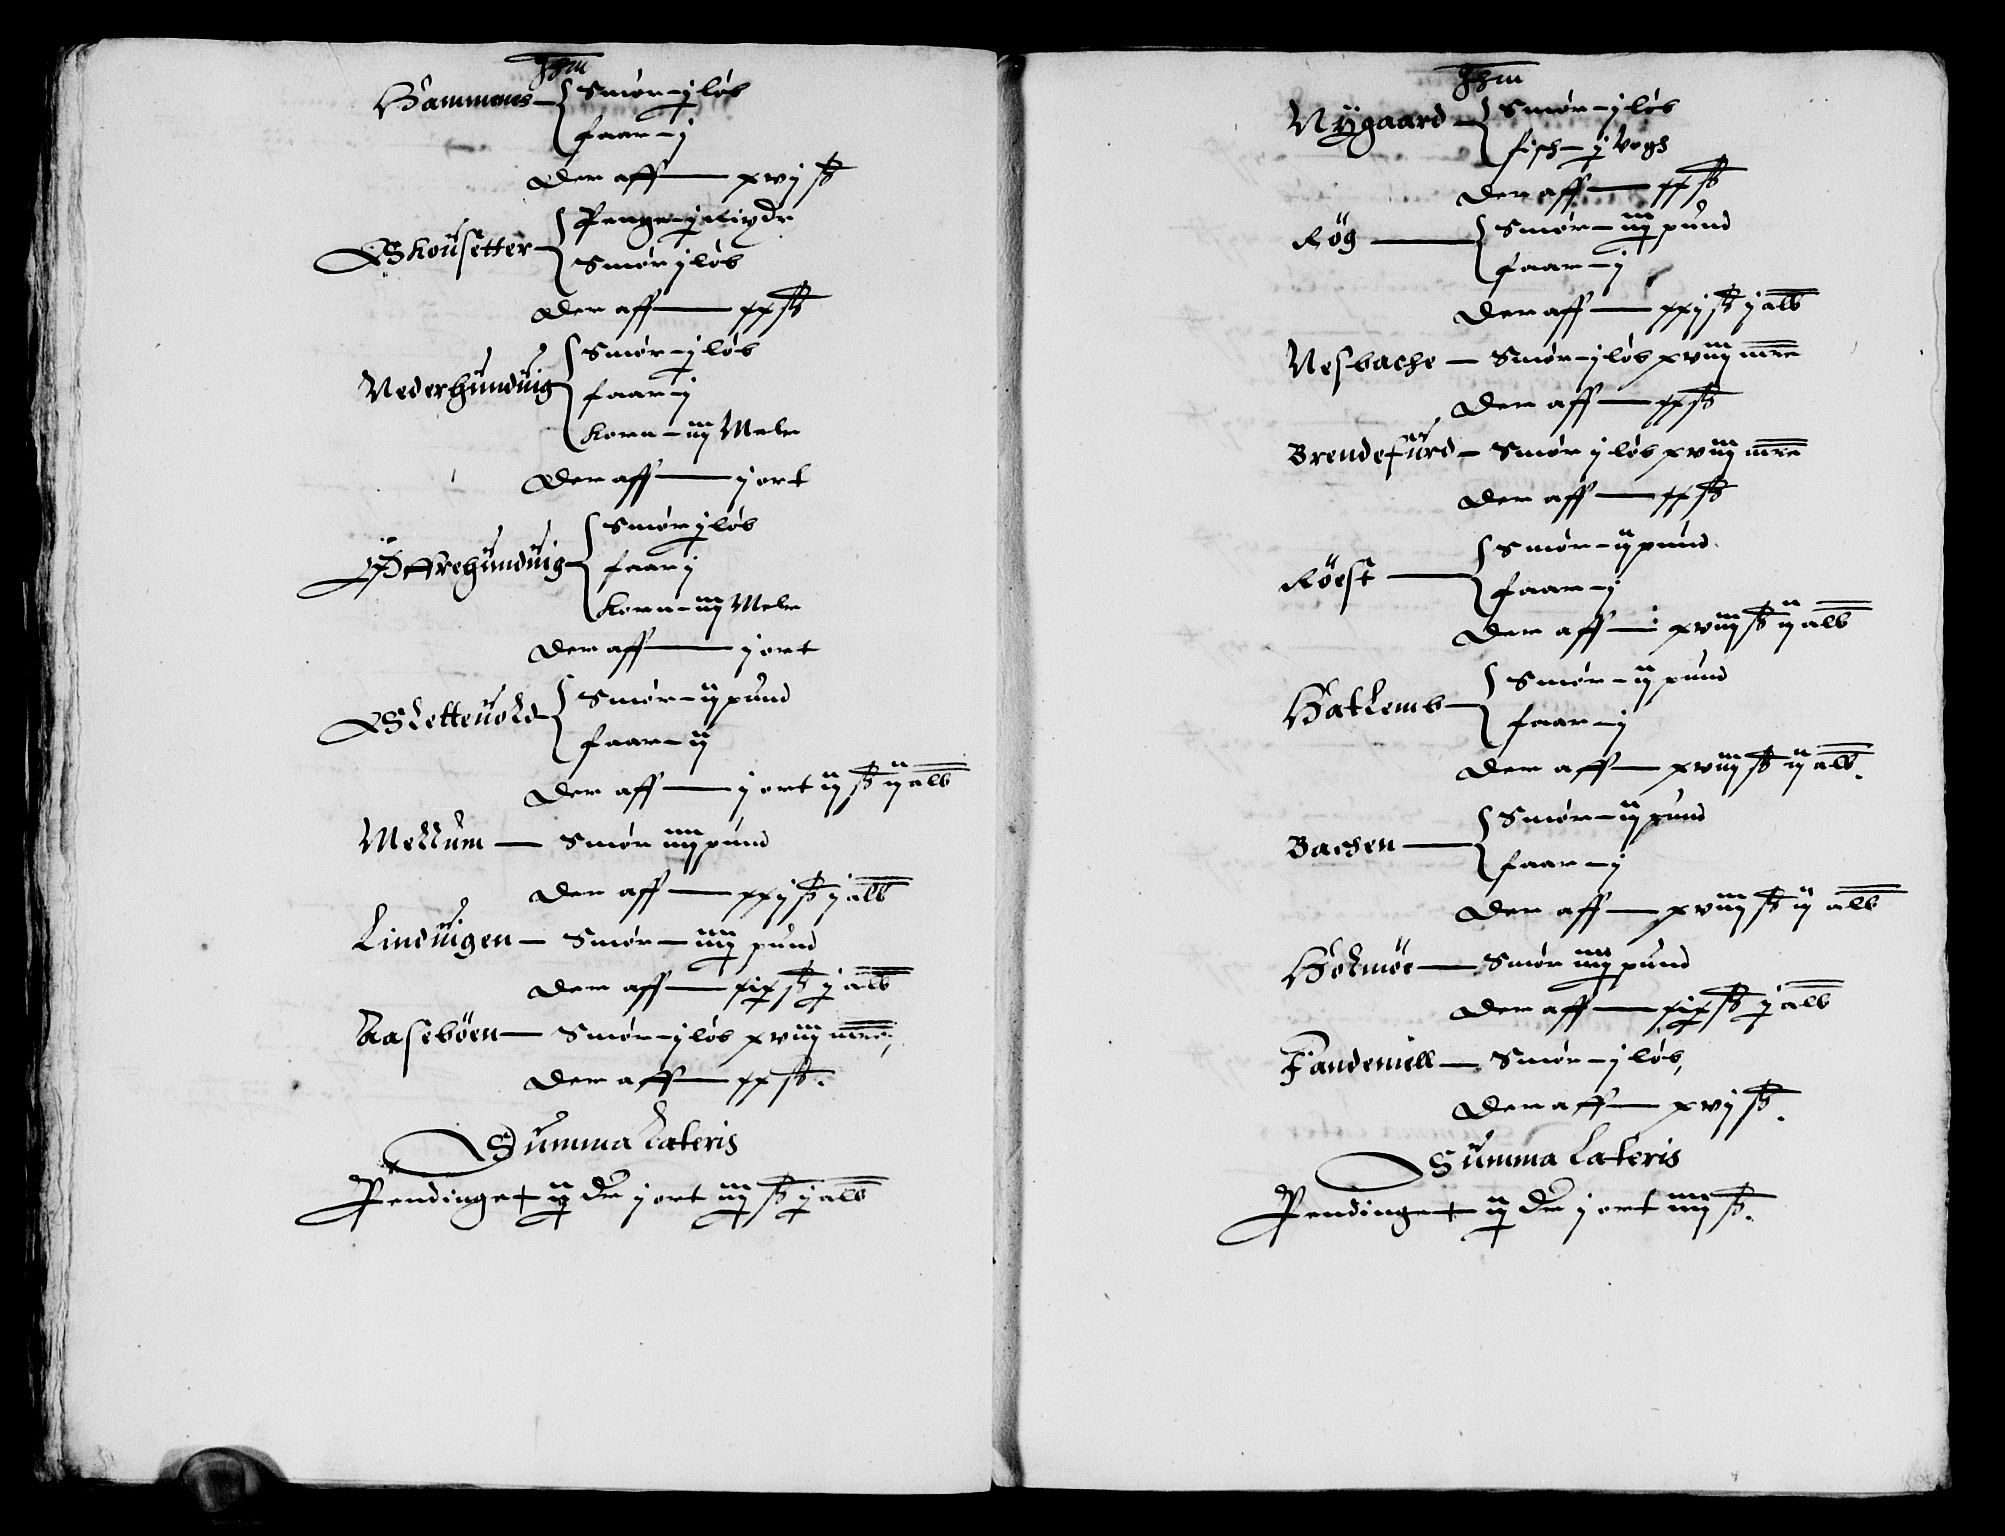 Jhm
Hammenes Smør j løb
faar j
Der aff xvj ß
Skousetter Penge j
Smør j løb
Der aff xx ß
Nederhunduig Smør j løb
faar j
Korn iij Mele
Der aff j ort
Øffrehunduig Smør j løb
faar j
Korn iij Mele
Der aff j ort
Sletteuold Smør ij pund
faar ij
Der aff j ort ij ß ij alb
Mellum Smør iiij pund
Der aff xxj ß j alb
Linduigen Smør iiij pund
Der aff xix ß j alb
Aasebøen Smør j løb xviij mrc
Der aff xx ß.
Summa Lateris
Pendinge ij dr j ort iij ß j alb
Jhm
Nÿgaard Smør j løb
fisch j Vogh
Der aff xx ß
Røg Smør iij pund
faar j
Der aff xxj ß j alb
Nesbache Smør j løb xviij mrc
Der aff xx ß
Brendefurd Smør j løb xviij mrc
Der aff xx ß
Røest Smør ij pund
faar j
Der aff xviij ß ij alb
Hatlemb Smør ij pund
faar j
Der aff xviij ß ij alb.
Bachen Smør ij pund
faar j
Der aff xviij ß ij alb
Holmøe Smør iiij pund
Der aff xix ß j alb
Fandemell Smør j løb,
Der aff xvj ß.
Summa Lateris
Pendinge ij dr j ort iiij ß.